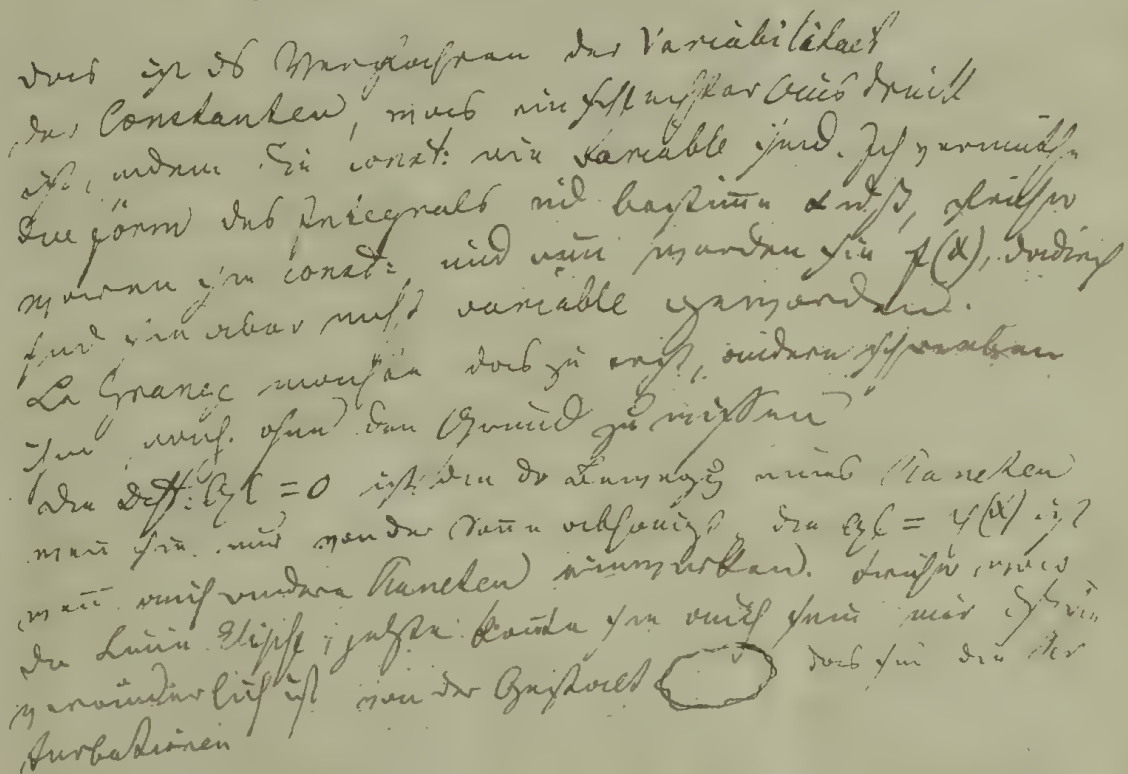 das ist das Verfahren der Variabilitaet
der Constanten, was ein schlechter Ausdruck
ist, indem die const: nie variable sind. Ich vermuthe
die Form des Integrals und bestimme α und β, früher
waren sie const:, und nun werden sie f(x), dadurch
sind sie aber nicht variable geworden.
La Grange machte das zu erst, andere schreiben
ihm nach ohne den Grund zu wissen
die Diff: Glch = 0 ist die der Bewegung eines Planeten
wenn sie nur von der Sonne abhängt, die Glch = φ(x) ist
wenn auch andere Planeten einwirken. Früher war
die Linie Elipse, jetzt könnte sie auch sein nur ist sie
veränderlich ist von der Gestalt das sind die Per
turbationen